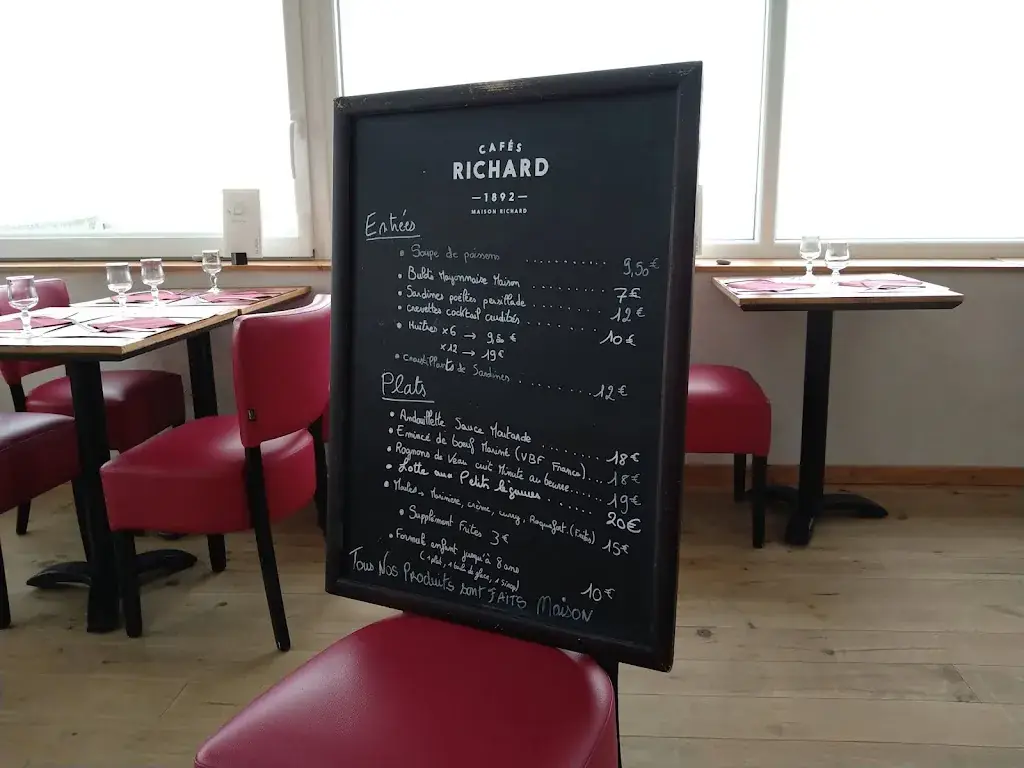 CAFÉS
RICHARD
—1892—
MAISON RICHARD
Entrées
• Soupe de poissons .......... 9,50€
• Bulots Mayonnaise Maison .......... 7€
• Sardines poêlées persillade .......... 12€
• Crevettes cocktail crudités .......... 10€
• Huîtres x6 → 9,50 €
x12 → 19€
• Croustillants de Sardines .......... 12€
Plats
• Andouillette Sauce Moutarde .......... 18€
• Emincé de boeuf Mariné (VBF France) .... 18€
• Rognons de Veau cuit Minute au beurre ...... 19€
• Lotte aux Petits légumes .......... 20€
• Moules, Marinière, crème, curry, Roquefort. (Frites) 15€
• Supplément Frites 3€
• Formule enfant jusqu'à 8 ans 10€
(1 plat, 1 boule de glace, 1 Sirop)
Tous Nos Produits sont FAITS Maison